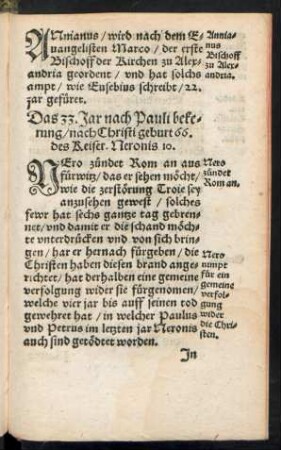 ANnianus / wird nach dem E-
uangelisten Marco / der erste
Bischoff der Kirchen zu Alex-
andria geordent / vnd hat solchs
ampt / wie Eusebius schreibt / 22.
jar gefüret.
Annia-
nus
Bischoff
zu Alex-
andria.
Das 33. Jar nach Pauli beke-
rung / nach Christi geburt 66.
des Keiser Neronis 10.
NEro zündet Rom an aus
fürwitz / das er sehen möcht /
wie die zerstörung Troie sey
anzusehen gewest / solches
fewr hat sechs gantze tag gebren-
net / vnd damit er die schand möch-
te vnterdrücken vnd von sich brin-
gen / hat er hernach fürgeben / die
Christen haben diesen brand ange-
richtet / hat derhalben eine gemeine
verfolgung wider sie fürgenomen /
welche vier jar bis auff seinen tod
gewehret hat / in welcher Paulus
vnd Petrus im letzten jar Neronis
auch sind getödtet worden.
Nero
zündet
Rom an.
Nero
nimpt
für ein
gemeine
verfol-
gung
wider
die Chri-
sten.
In